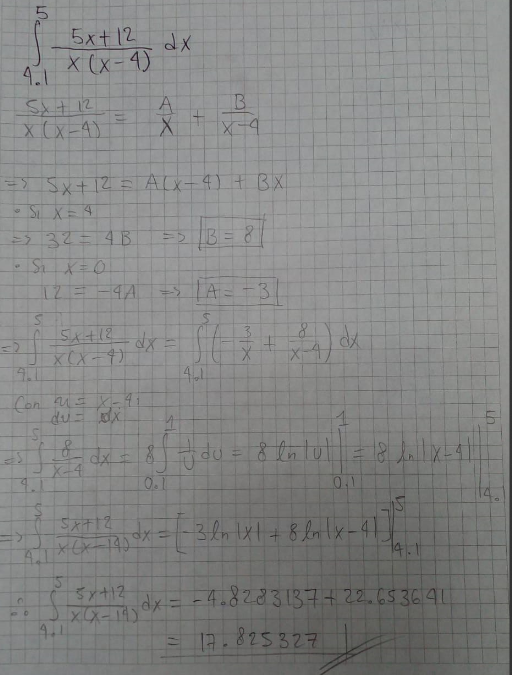 ∫_{4.1}^{5} (5x+12)/(x(x-4)) dx
(5x+12)/(x(x-4)) = A/x + B/(x-4)
=> 5x+12 = A(x-4) + Bx
· Si x=4
=> 32 = 4B => B = 8
· Si x=0
12 = -4A => A = -3
=> ∫_{4.1}^{5} (5x+12)/(x(x-4)) dx = ∫_{4.1}^{5} (-3/x + 8/(x-4)) dx
Con u = x-4,
du = dx
=> ∫_{4.1}^{5} 8/(x-4) dx = 8∫_{0.1}^{1} 1/u du = 8 ln|u| |_{0.1}^{1} = 8 ln|x-4| |_{4.1}^{5}
=> ∫_{4.1}^{5} (5x+12)/(x(x-14)) dx = [-3ln|x| + 8ln|x-4|] |_{4.1}^{5}
∴ ∫_{4.1}^{5} (5x+12)/(x(x-14)) dx = -4.8283137 + 22.653641
= 17.825327